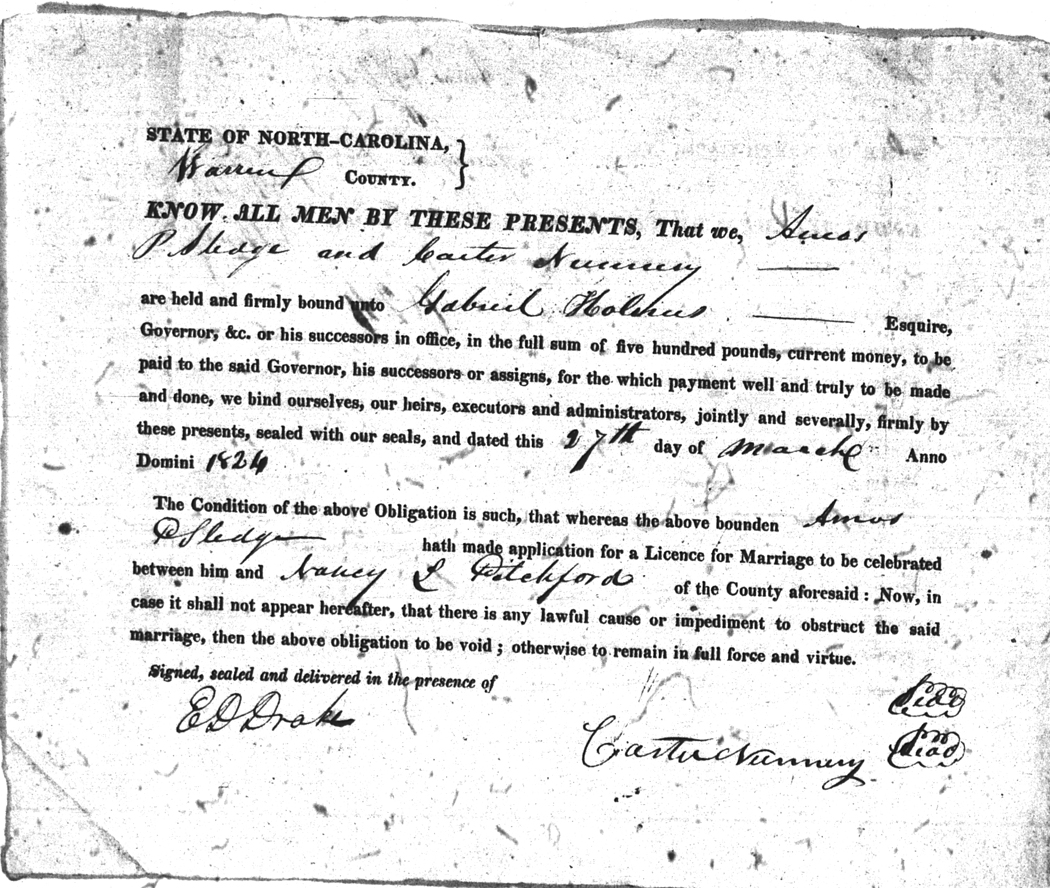 STATE OF NORTH-CAROLINA, }
Warren COUNTY.
KNOW ALL MEN BY THESE PRESENTS, That we, Amos
P Sledge and Carter Nunnery
are held and firmly bound unto Gabriel Holmes Esquire,
Governor, &c. or his successors in office, in the full sum of five hundred pounds, current money, to be
paid to the said Governor, his successors or assigns, for the which payment well and truly to be made
and done, we bind ourselves, our heirs, executors and administrators, jointly and severally, firmly by
these presents, sealed with our seals, and dated this 27th day of March Anno
Domini 1824
The Condition of the above Obligation is such, that whereas the above bounden Amos
P Sledge hath made application for a Licence for Marriage to be celebrated
between him and Nancy L Pitchford of the County aforesaid : Now, in
case it shall not appear hereafter, that there is any lawful cause or impediment to obstruct the said
marriage, then the above obligation to be void ; otherwise to remain in full force and virtue.
Signed, sealed and delivered in the presence of
Seal
E D Drake
Carter Nunnery Seal